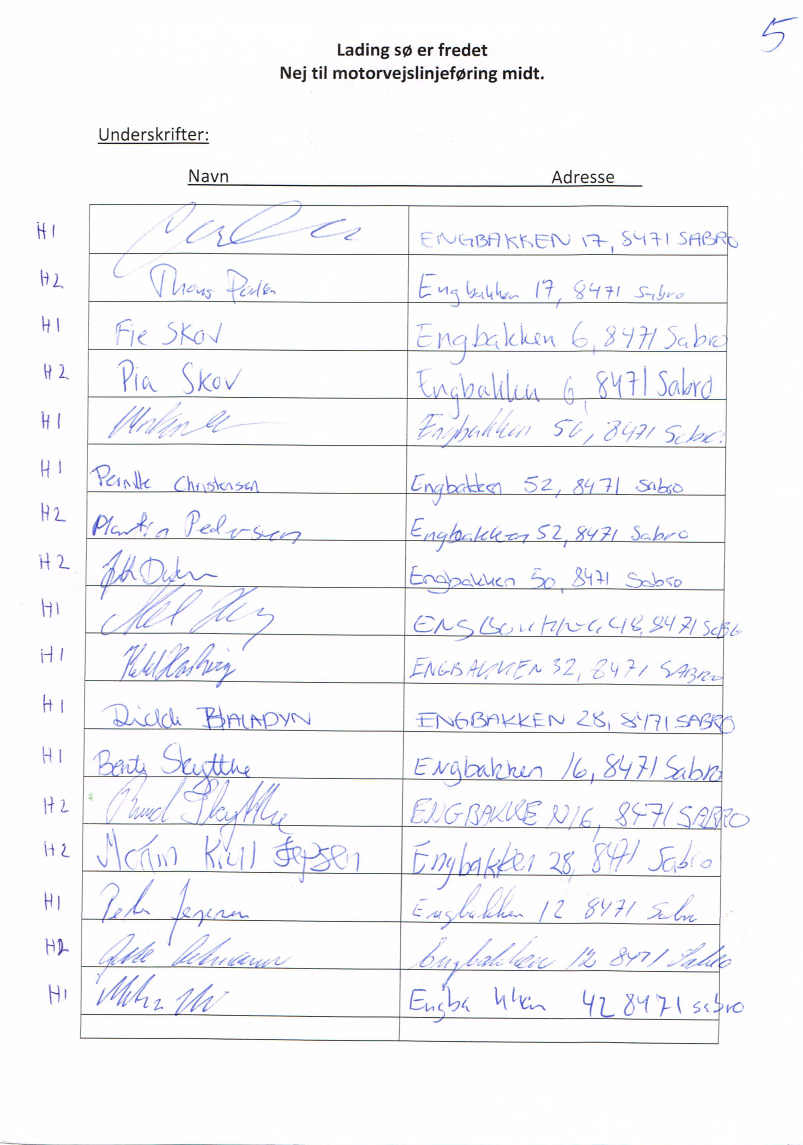 5
Lading sø er fredet
Nej til motorvejslinjeføring midt.
Underskrifter:
Navn Adresse
H1 ENGBAKKEN 17, 8471 SABRO
H2 Engbakken 17, 8471 Sabro
H1 Fie SKOV Engbakken 6, 8471 Sabro
H2 Pia SKOV Engbakken 6, 8471 Sabro
H1 Engbakken 56, 8471 Sabro
H1 Pernille Christensen Engbakken 52, 8471 Sabro
H2 Martin Pedersen Engbakken 52, 8471 Sabro
H2 Engbakken 50, 8471 Sabro
H1 48, 8471 Sabro
H1 ENGBAKKEN 32, 8471 SABRO
H1 BALADYN ENGBAKKEN 28, 8471 SABRO
H1 Bente Skytthe Engbakken 16, 8471 Sabro
H2 Skytthe ENGBAKKEN 16, 8471 SABRO
H2 Jepsen Engbakken 28, 8471 Sabro
H1 Engbakken 12 8471 Sabro
H2 Engbakken 12 8471 Sabro
H1 Engbakken 42 8471 sabro